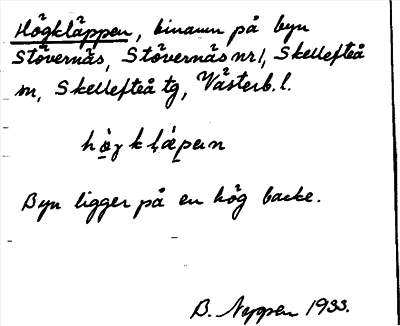 Högkläppen, binamn på byn
Stövernäs, Stövernäs nr 1, Skellefteå
sn, Skellefteå tg, Västerb. l.
Byn ligger på en hög backe.
B. Nygren 1933.